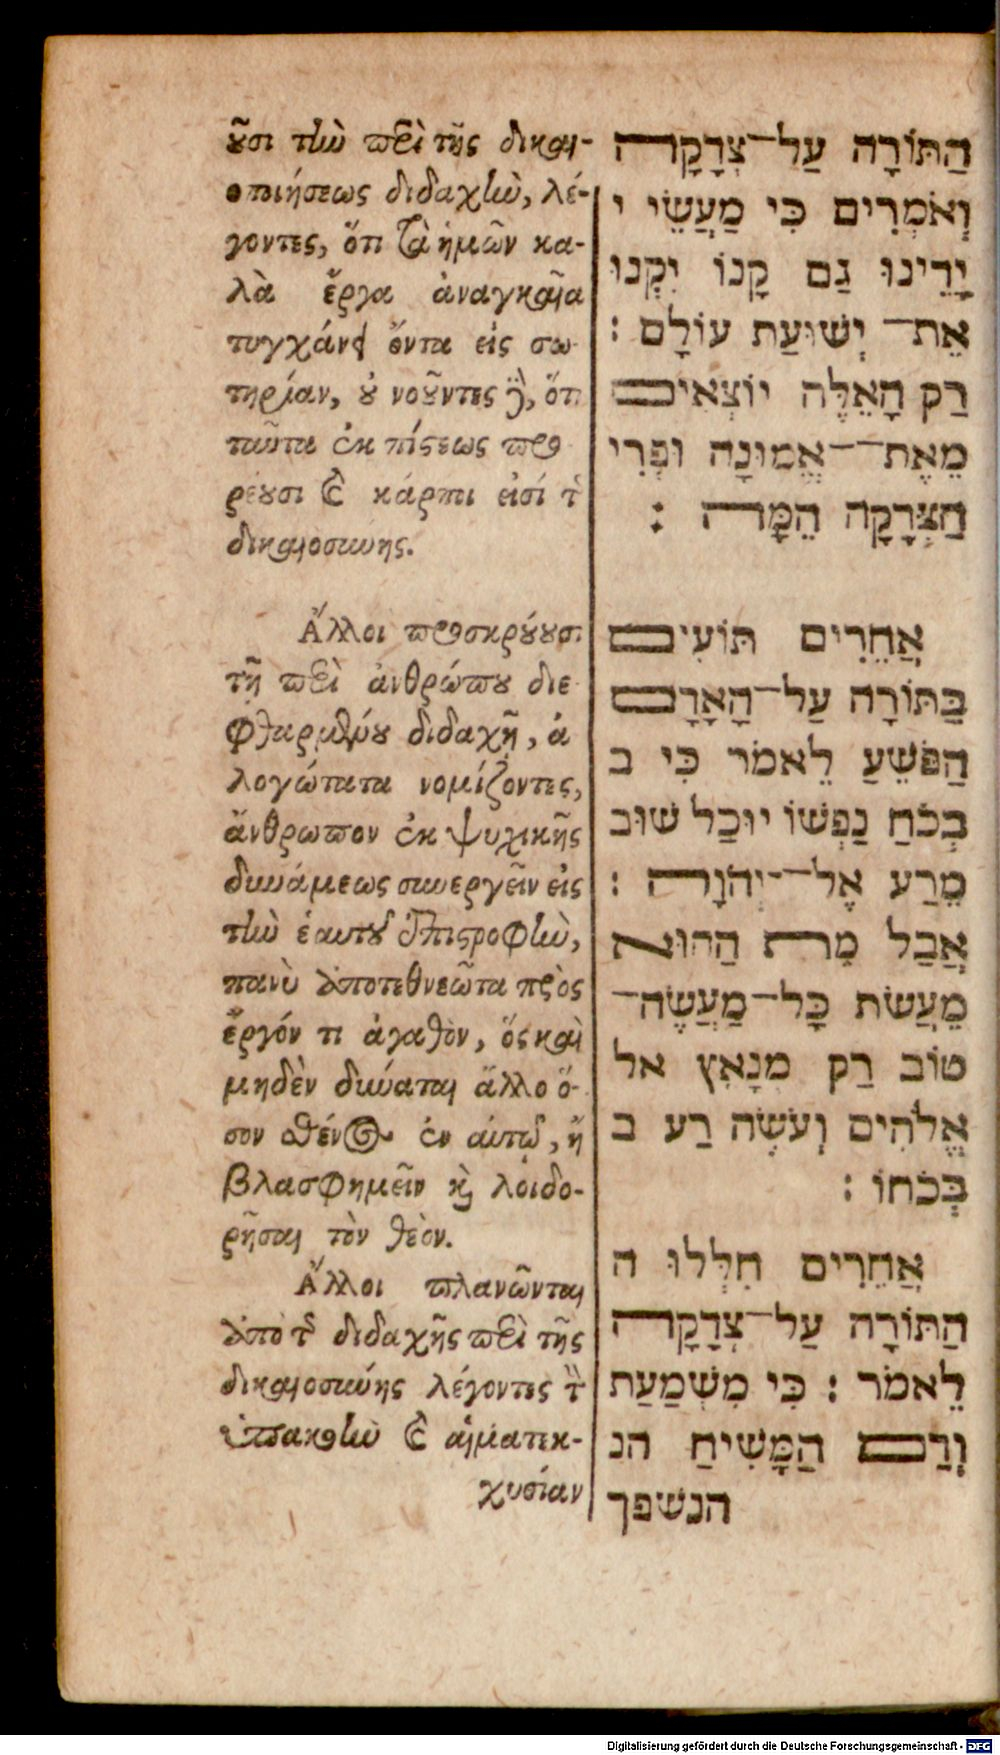 οῦσι τὴν περὶ τῆς δικαι-
οποιήσεως διδαχὴν, λέ-
γοντες, ὅτι τὰ ἡμῶν κα-
λὰ ἔργα ἀναγκαῖα
τυγχάνει ὄντα εἰς σω-
τηρίαν, οὐ νοοῦντες δὲ, ὅτι
ταῦτα ἐκ πίστεως προ
ρέουσι καὶ κάρποι εἰσί τῆς
δικαιοσύνης.
Ἄλλοι προσκρούουσι
τῇ περὶ ἀνθρώπου διε
φθαρμένου διδαχῇ, ἀ
λογώτατα νομίζοντες,
ἄνθρωπον ἐκ ψυχικῆς
δυνάμεως συνεργεῖν εἰς
τὴν ἑαυτοῦ ἐπιστροφὴν,
πανὺ ἀποτεθνεῶτα πρὸς
ἔργόν τι ἀγαθὸν, ὅς καὶ
μηδὲν δύναται ἄλλο ὅ-
σον θένος ἐν αὐτῷ, ἢ
βλασφημεῖν καὶ λοιδο-
ρῆσαι τὸν θεὸν.
Ἄλλοι πλανῶνται
ἀπὸ τῆς διδαχῆς περὶ τῆς
δικαιοσύνης λέγοντες τὴν
ὑπακοὴν καὶ αἱματεκ-
χυσίαν
הַתּוֹרָה עַל־צְדָקָה
וְאֹמְרִים כִּי מַעֲשֵׂי י
יָדֵינוּ גַם קָנוֹ יִקְנוּ
אֵת־ יְשׁוּעַת עוֹלָם :
רַק הָאֵלֶּה יוֹצְאִים
מֵאֶת־־אֱמוּנָה וּפְרִי
הַצְּדָקָה הֵמָּה :
אֲחֵרִים תּוֹעִים
בַּתּוֹרָה עַל־הָאָדָם
הַפֹּשֵׁעַ לֵאמֹר כִּי ב
בְכֹחַ נַפְשׁוֹ יוּכַל שׁוּב
מֵרַע אֶל־־יְהוָה :
אֲבַל מֵת הַהוּא
מֵעֲשֹת כָּל־מַעֲשֶׂה־
טוֹב רַק מִנָאֵץ אל
אֱלֹהִים וְעֹשֶׂה רַע ב
בְּכֹחוֹ :
אֲחֵרִים חִלְּלוּ ה
הַתּוֹרָה עַל־צְדָקָה
לֵאמֹר : כִּי מִשְׁמַעַת
וְדַם הַמָּשִׁיחַ הנ
הנשפך
Digitalisierung gefördert durch die Deutsche Forschungsgemeinschaft - DFG